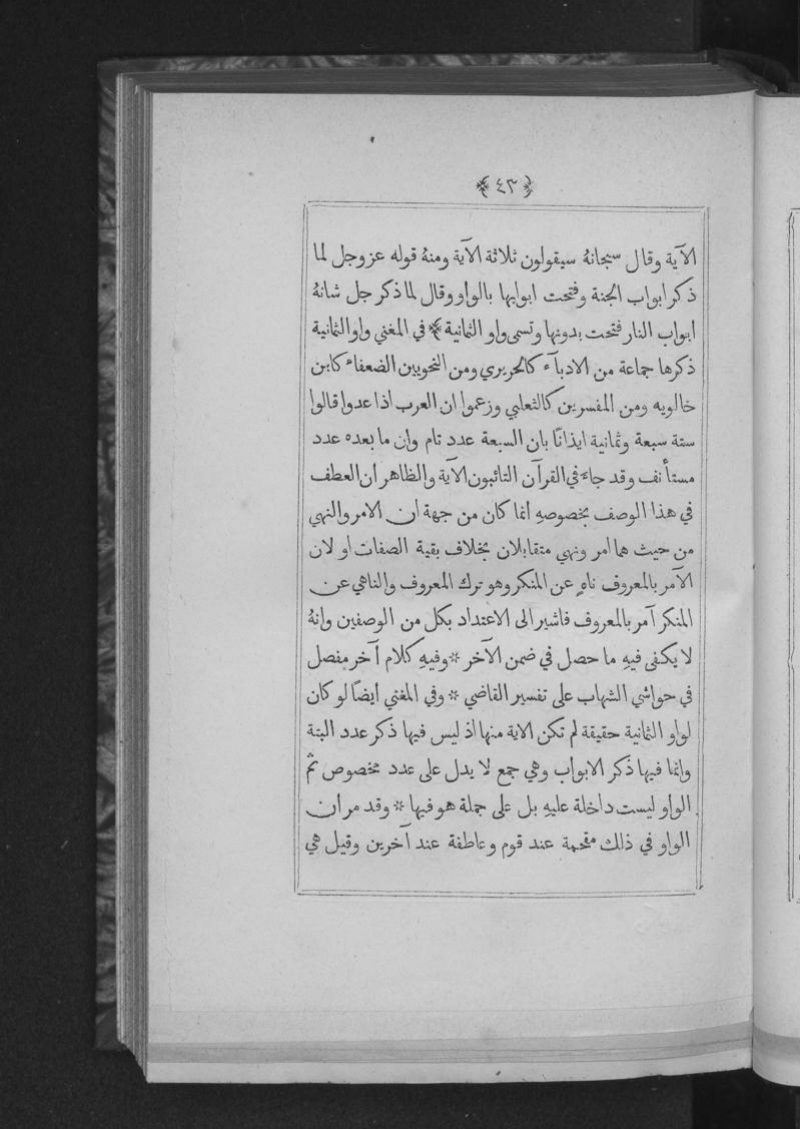 ﴿ ٤٣ ﴾
الآية وقال سبحانهُ سيقولون ثلاثة الآية ومنهُ قوله عز وجل لما
ذكر ابواب الجنة وفتحت ابوابها بالواو وقال لما ذكر جل شانهُ
ابواب النار فتحت بدونها وتسمى واو الثمانية ﴾ في المغني واو الثمانية
ذكرها جماعة من الادبآء كالحريري ومن النحويين الضعفاء كابن
خالويه ومن المفسرين كالثعلبي وزعموا ان العرب اذا عدوا قالوا
ستة سبعة وثمانية ايذانًا بان السبعة عدد تام وان ما بعده عدد
مستأنف وقد جاء في القرآن التائبون الآية والظاهر ان العطف
في هذا الوصف بخصوصهِ انما كان من جهة ان الامر والنهي
من حيث هما امر ونهي متقابلان بخلاف بقية الصفات او لان
الآمر بالمعروف ناهٍ عن المنكر وهو ترك المعروف والناهي عن
المنكر آمر بالمعروف فاشير الى الاعتداد بكل من الوصفين وانهُ
لا يكفى فيهِ ما حصل في ضمن الآخر * وفيهِ كلام آخر مفصل
في حواشي الشهاب على تفسير القاضي * وفي المغني ايضًا لو كان
لواو الثمانية حقيقة لم تكن الاية منها اذ ليس فيها ذكر عدد البتة
وانما فيها ذكر الابواب وهي جمع لا يدل على عدد مخصوص ثم
الواو ليست داخلة عليهِ بل على جملة هو فيها * وقد مر ان
الواو في ذلك مقحمة عند قوم وعاطفة عند آخرين وقيل هي